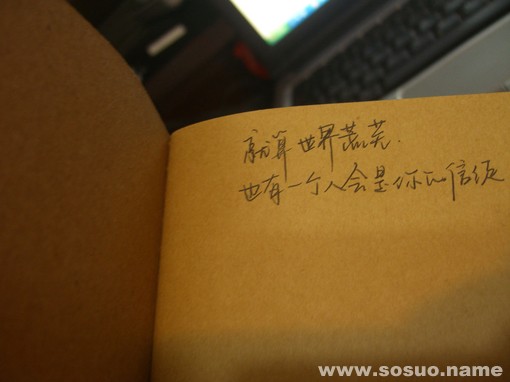 就算世界荒芜.
也有一个人会是你的信徒
www.sosuo.name